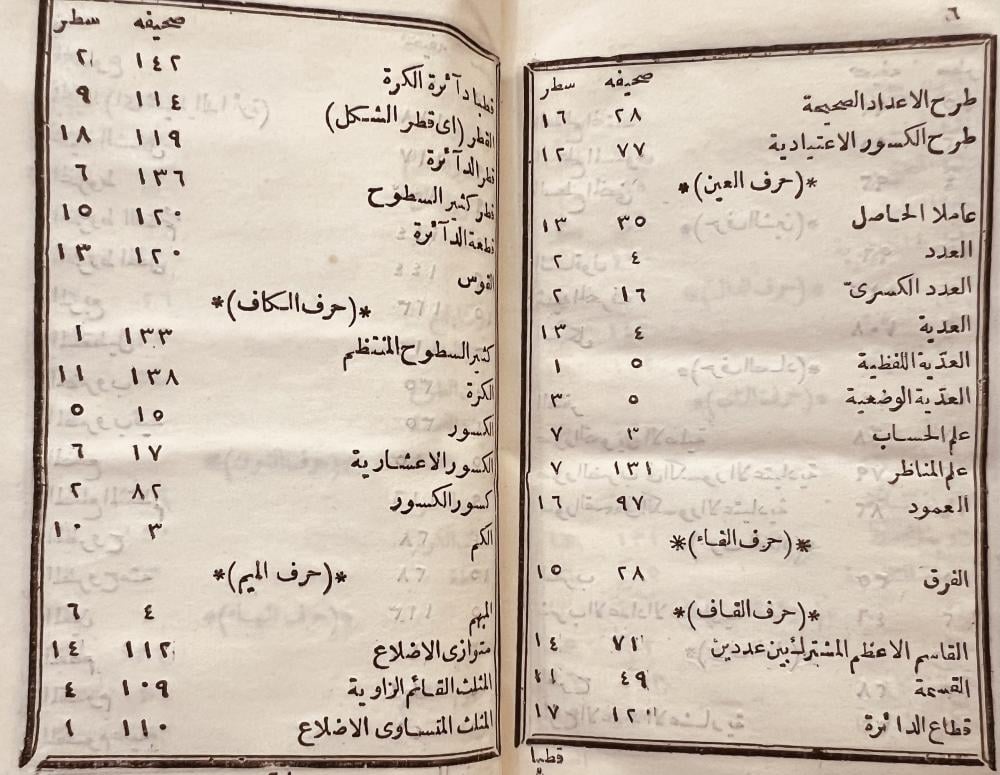 ٦
صحيفه سطر
طرح الاعداد الصحيحة ٢٨ ١٦
طرح الكسور الاعتيادية ٧٧ ١٢
*(حرف العين)*
عاملا الحاصل ٣٥ ١٣
العدد ٤ ٢
العدد الكسرىّ ١٦ ٢
العدية ٤ ١٣
العدّية اللفظية ٥ ١
العدّية الوضعية ٥ ٣
علم الحساب ٣ ٧
علم المناظر ١٣١ ٧
العمود ٩٧ ١٦
*(حرف الفاء)*
الفرق ٢٨ ١٥
*(حرف القاف)*
القاسم الاعظم المشترك بين عددين ٧١ ١٤
القسمة ٤٩ ١١
قطاع الدائرة ١٢١ ١٧
قطبا
صحيفه سطر
قطبا دآئرة الكرة ١٤٢ ٢
القطر (اى قطر الشكل) ١١٤ ٩
قطر الدآئرة ١١٩ ١٨
قطر كثير السطوح ١٣٦ ٦
قطعة الدآئرة ١٢٠ ١٥
القوس ١٢٠ ١٣
*(حرف الكاف)*
كثير السطوح المنتظم ١٣٣ ١
الكرة ١٣٨ ١١
الكسور ١٥ ٥
الكسور الاعشارية ١٧ ٦
كسور الكسور ٨٢ ٢
الكم ٣ ١٠
*(حرف الميم)*
المبهم ٤ ٦
متوازى الاضلاع ١١٢ ١٤
المثلث القائم الزاوية ١٠٩ ٤
المثلث المتساوى الاضلاع ١١٠ ١